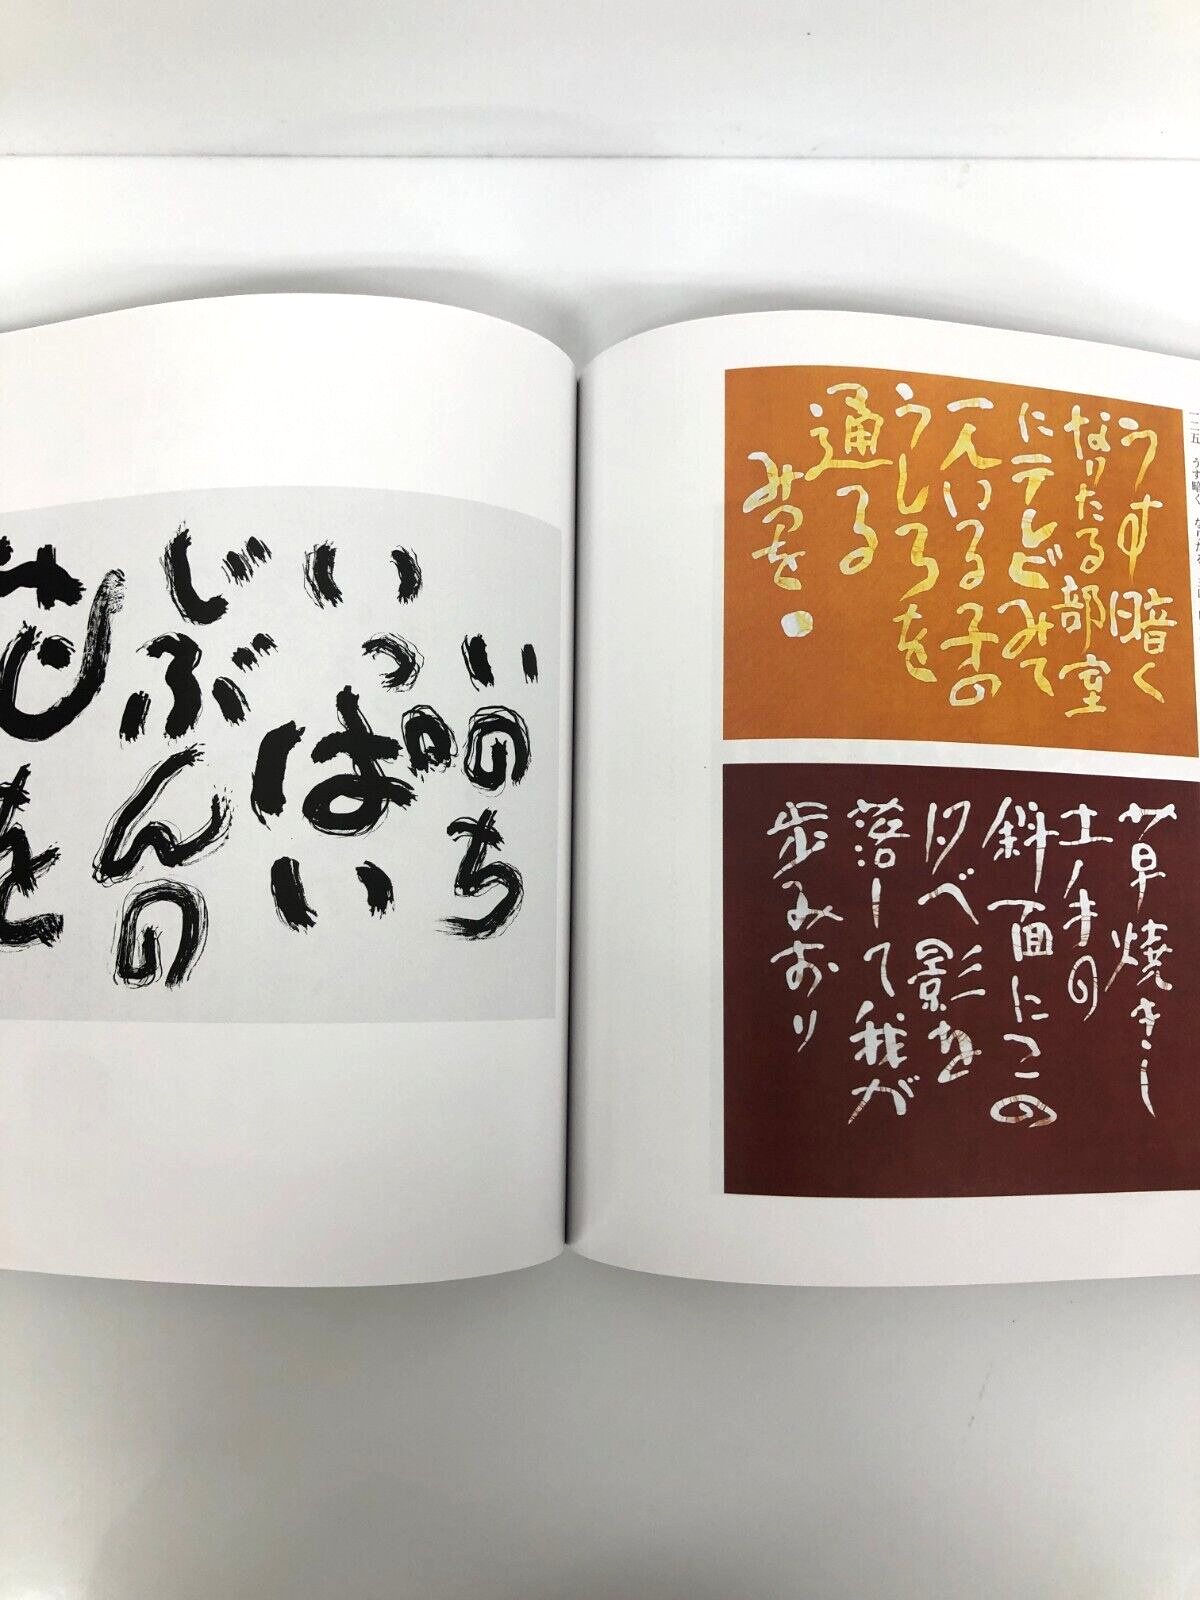 いのち
いっぱい
じぶんの
花を
一二五 うす暗く なりたる
うす暗く
なりたる部室
にテレビみて
一人いる子の
うしろを
通る
みつを
草焼きし
土手の
斜面にこの
夕べ影を
落して我が
歩みおり